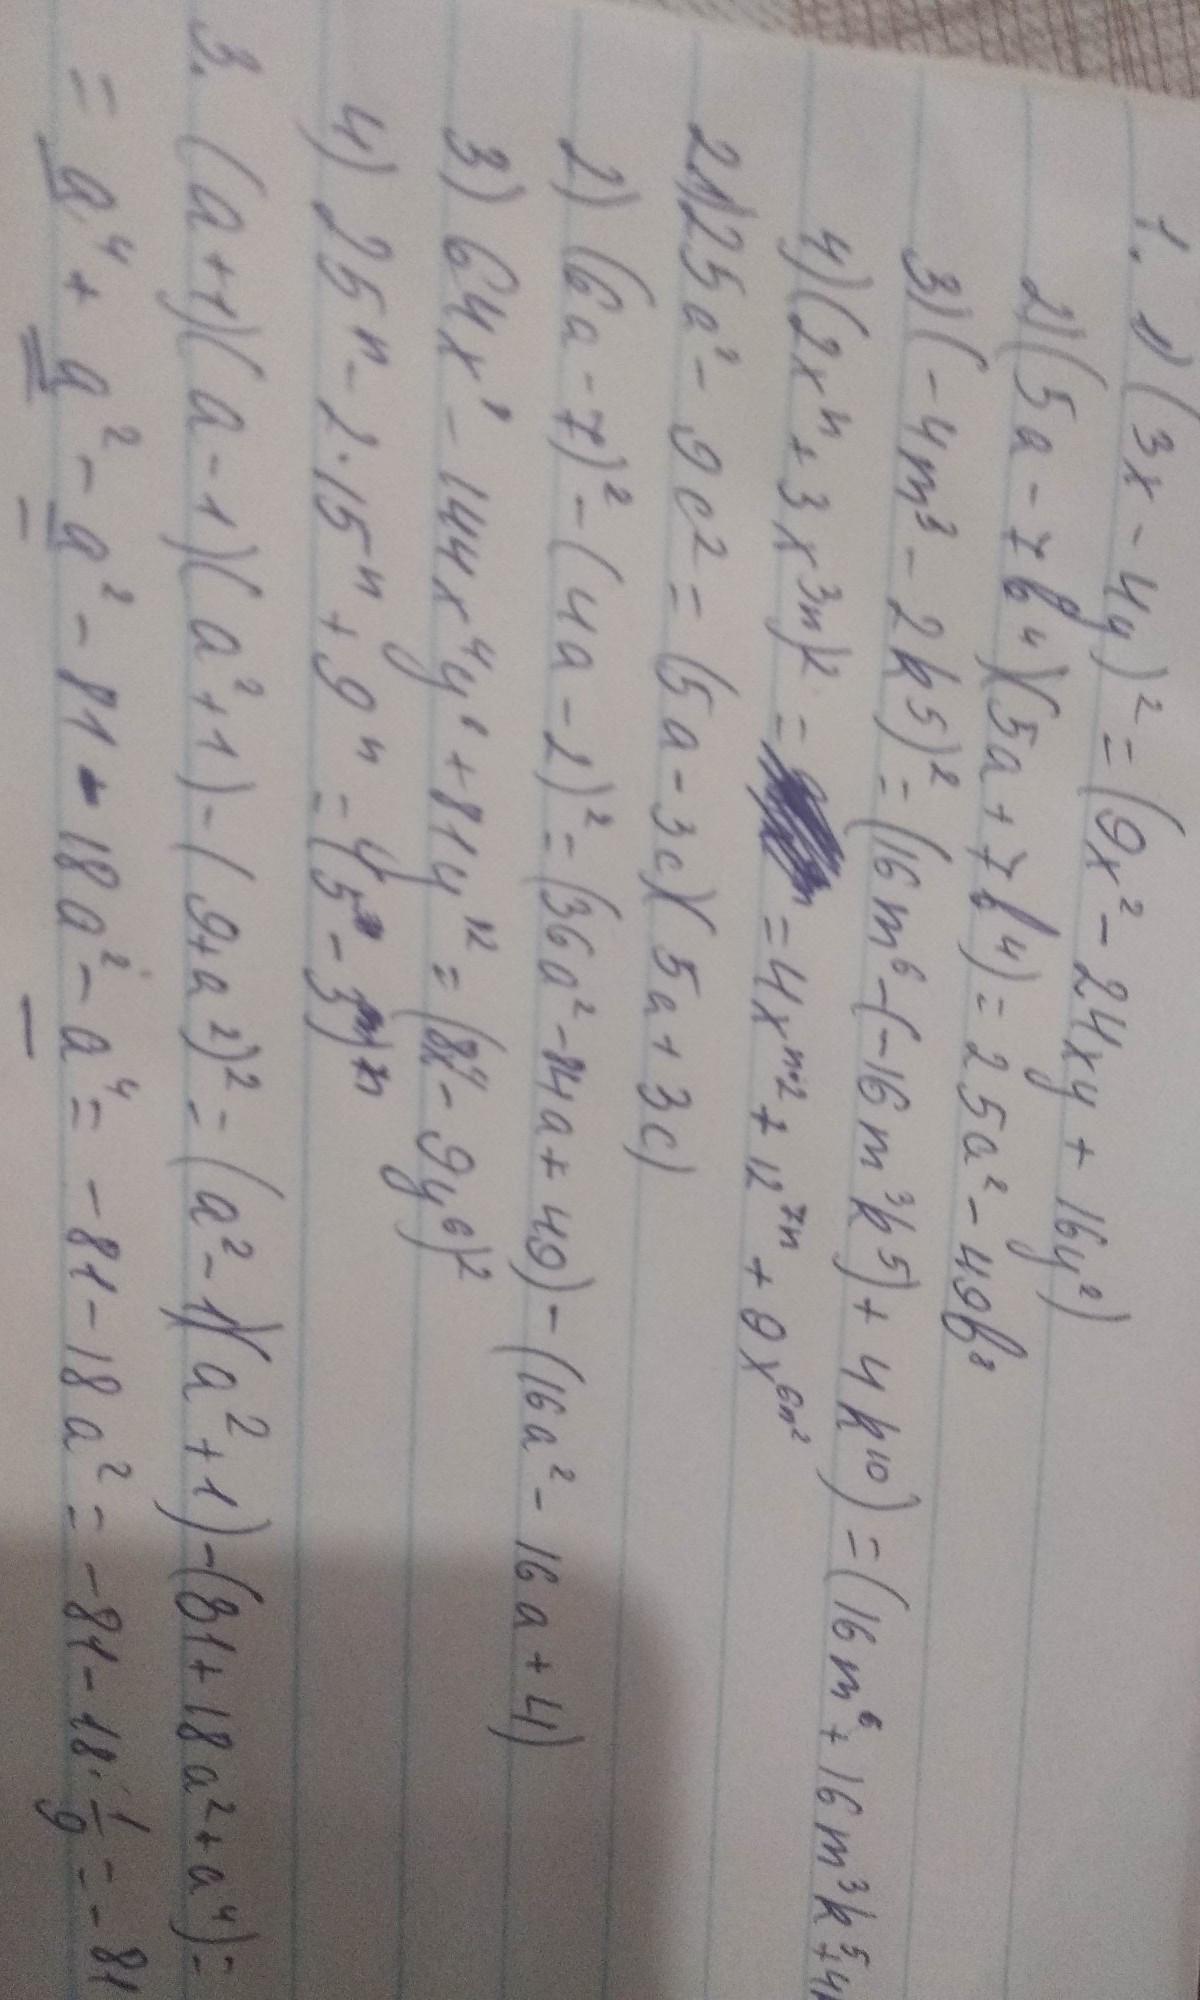 1. 1) (3x - 4y)² = (9x² - 24xy + 16y²)
2) (5a - 7b⁴)(5a + 7b⁴) = 25a² - 49b⁸
3) (-4m³ - 2k⁵)² = (16m⁶ - (-16m³k⁵) + 4k¹⁰) = (16m⁶ + 16m³k⁵ + 4k
4) (2xⁿ + 3x³ⁿ)² = = 4xⁿ·² + 12⁷ⁿ + 9x⁶ⁿ²
2 1) 25a² - 9c² = (5a - 3c)(5a + 3c)
2) (6a - 7)² - (4a - 2)² = (36a² - 84a + 49) - (16a² - 16a + 4)
3) 64x⁸ - 144x⁴y⁶ + 81y¹² = (8x⁴ - 9y⁶)²
4) 25ⁿ - 2·15ⁿ + 9ⁿ = (5 - 3)
3. (a+1)(a-1)(a²+1) - (9+a²)² = (a²-1)(a²+1) - (81+18a²+a⁴) =
= a⁴ + a² - a² - 81 - 18a² - a⁴ = -81 - 18a² = -81 - 18·1/9 = -81